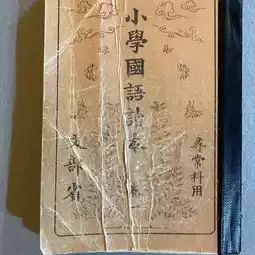 尋常科用
小學國語讀本 卷
文部省